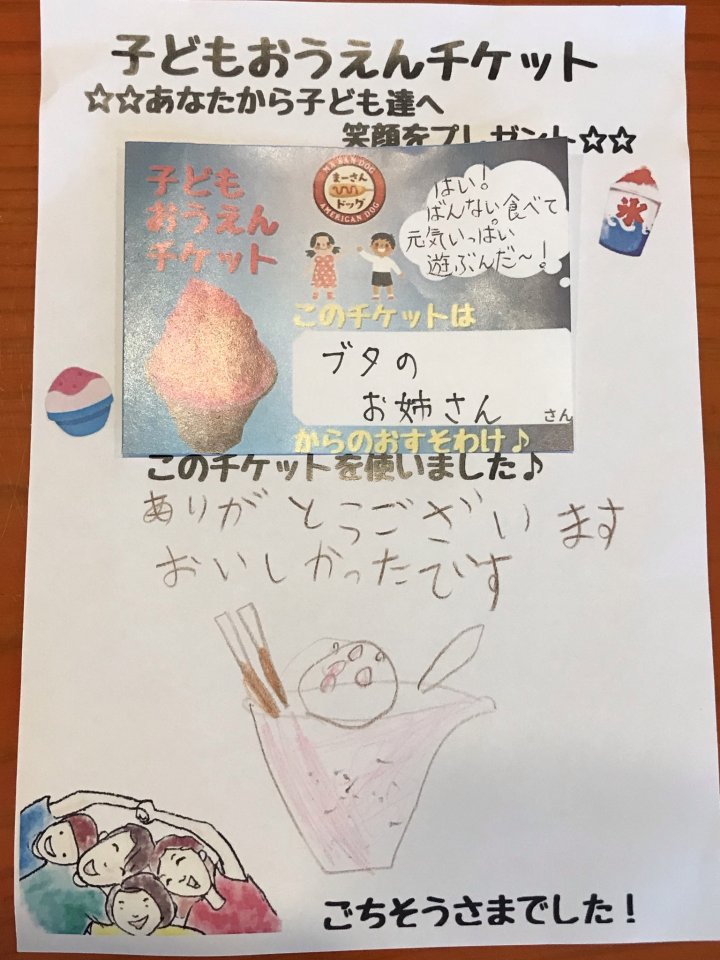 子どもおうえんチケット
☆☆あなたから子ども達へ
笑顔をプレゼント☆☆
子ども
おうえん
チケット
MA'SAN DOG
まーさん
ドッグ
AMERICAN DOG
はい!
ばんない食べて
元気いっぱい
遊ぶんだ〜!
氷
このチケットは
ブタの
お姉さん
さん
からのおすそわけ♪
このチケットを使いました♪
ありがとうございます
おいしかったです
ごちそうさまでした!